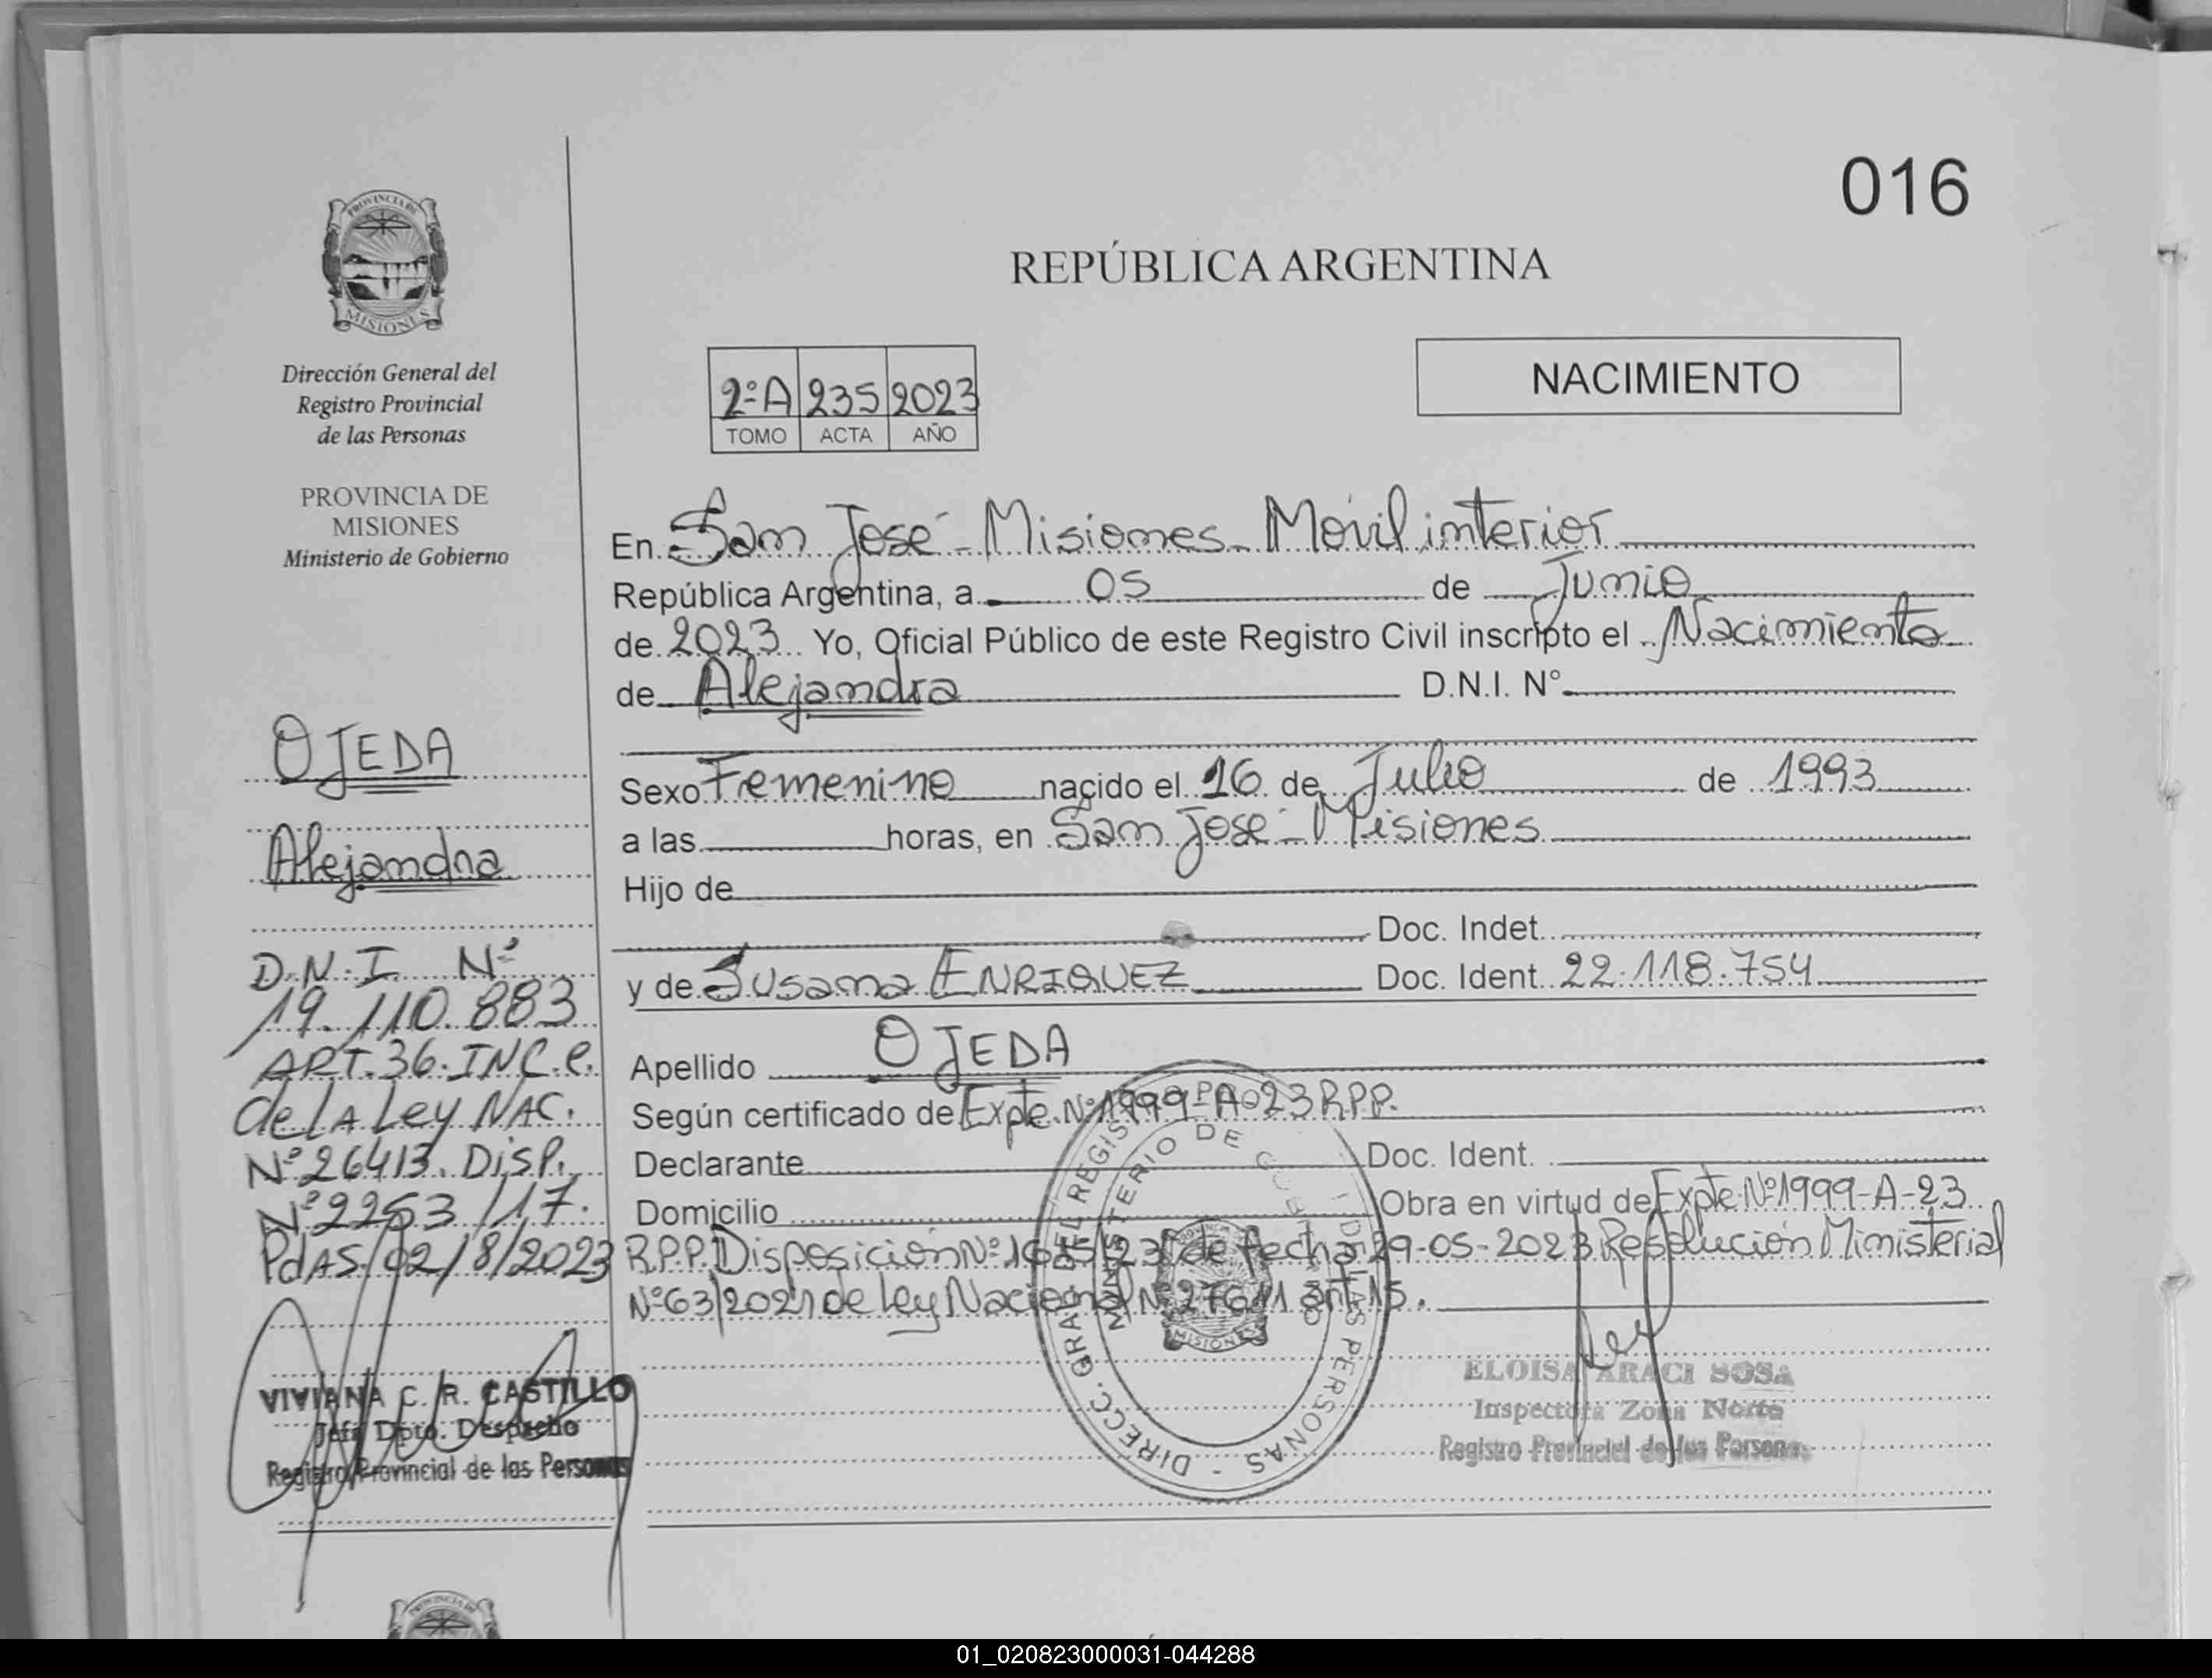 016
PROVINCIA DE
MISIONES
REPÚBLICA ARGENTINA
NACIMIENTO
Dirección General del
Registro Provincial
de las Personas
PROVINCIA DE
MISIONES
Ministerio de Gobierno
2º A 235 2023
TOMO ACTA AÑO
En San José - Misiones - Móvil interior
República Argentina, a 05 de Junio
de 2023 Yo, Oficial Público de este Registro Civil inscripto el Nacimiento
de Alejandra D.N.I. N°
Sexo Femenino nacido el 16 de Julio de 1993
a las horas, en San José - Misiones
Hijo de
Doc. Indet.
y de Susana ENRIQUEZ Doc. Ident. 22.118.754
Apellido OJEDA
Según certificado de Expte. Nº 1999-A-23 R.P.P.
Declarante Doc. Ident.
Domicilio Obra en virtud de Expte Nº 1999-A-23
R.P.P. Disposición Nº 1635/23 de fecha 29-05-2023 Resolución Ministerial
Nº 63/2021 de Ley Nacional Nº 27611 art 15.
OJEDA
Alejandra
D.N.I. Nº
19.110.883
ART. 36. INC. C.
de LA Ley NAC.
Nº 26413. DISP.
Nº 2253/17.
PdAS/02/8/2023
VIVIANA C. R. CASTILLO
Jefa Dpto. Despacho
Registro Provincial de las Personas
DIRECC. GRAL. DEL REGISTRO DE LAS PERSONAS
MINISTERIO DE GOBIERNO
MISIONES
ELOISA ARACI SOSA
Inspectora Zona Norte
Registro Provincial de las Personas
01_020823000031-044288